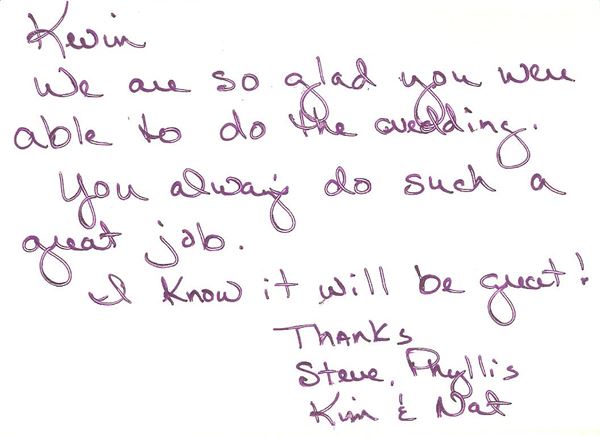 Kevin
We are so glad you were
able to do the wedding.
You always do such a
great job.
I know it will be great!
Thanks
Steve, Phyllis
Kim & Nat